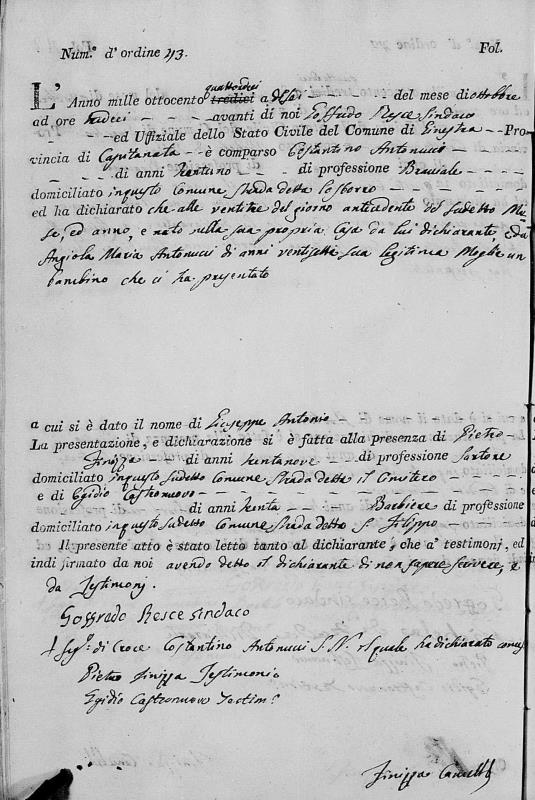 Num.º d'ordine 43. Fol.
quattordici
L'Anno mille ottocento tredici a dì - - - - del mese di ottobre
ad ore tredici - - - - avanti di noi Goffredo Resce Sindaco
- - - ed Uffiziale dello Stato Civile del Comune di Ginestra - - Pro-
vincia di Capitanata - - è comparso Costantino Antonucci - -
- - - - di anni trentuno - - di professione Bracciale - - - -
domiciliato in questo Comune Strada detta - - - -
ed ha dichiarato che alle ventitre del giorno antecedente del sudetto Me-
se, ed anno, e nato nella sua propria Casa da lui dichiarante, e da
Angiola Maria Antonucci di anni ventisette sua legitima Moglie un
bambino che ci ha presentato
a cui si è dato il nome di Giuseppe Antonio
La presentazione, e dichiarazione si è fatta alla presenza di Pietro -
Finizza - - di anni trentanove - - di professione Sartore
domiciliato in questo sudetto Comune Strada detta il Cimitero - - -
- e di Egidio Castronuovo - - - - - - - -
- - - - di anni trenta - - Barbiere di professione
domiciliato in questo sudetto Comune Strada detta S. Filippo - - -
Il presente atto è stato letto tanto al dichiarante, che a' testimonj, ed
indi firmato da noi avendo detto il dichiarante di non sapere scrivere, e
da Testimonj.
Goffredo Resce sindaco
† Seg.º di Croce Costantino Antonucci S.N. il quale ha dichiarato come
Pietro Finizza Testimonio
Egidio Castronuovo Testim.º
Finizza